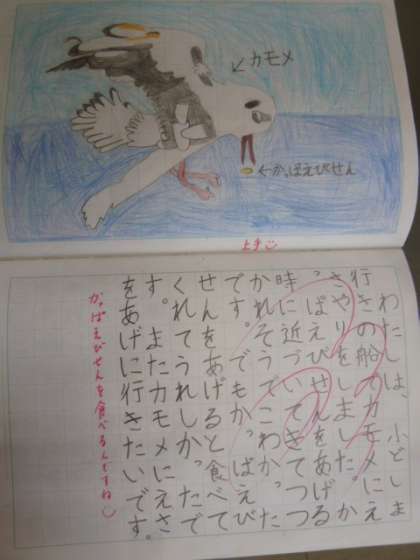 カモメ
かっぱえびせん
上手
わたしは、小どしま
行きの船でカモメにえ
さやりをしました。か
っぱえびせんをあげる
時に近づいてきてつつ
かれそうでこわかった
です。でもかっぱえび
せんをあげると食べて
くれてうれしかったで
す。またカモメにえさ
をあげに行きたいです。
かっぱえびせんを食べるんですね